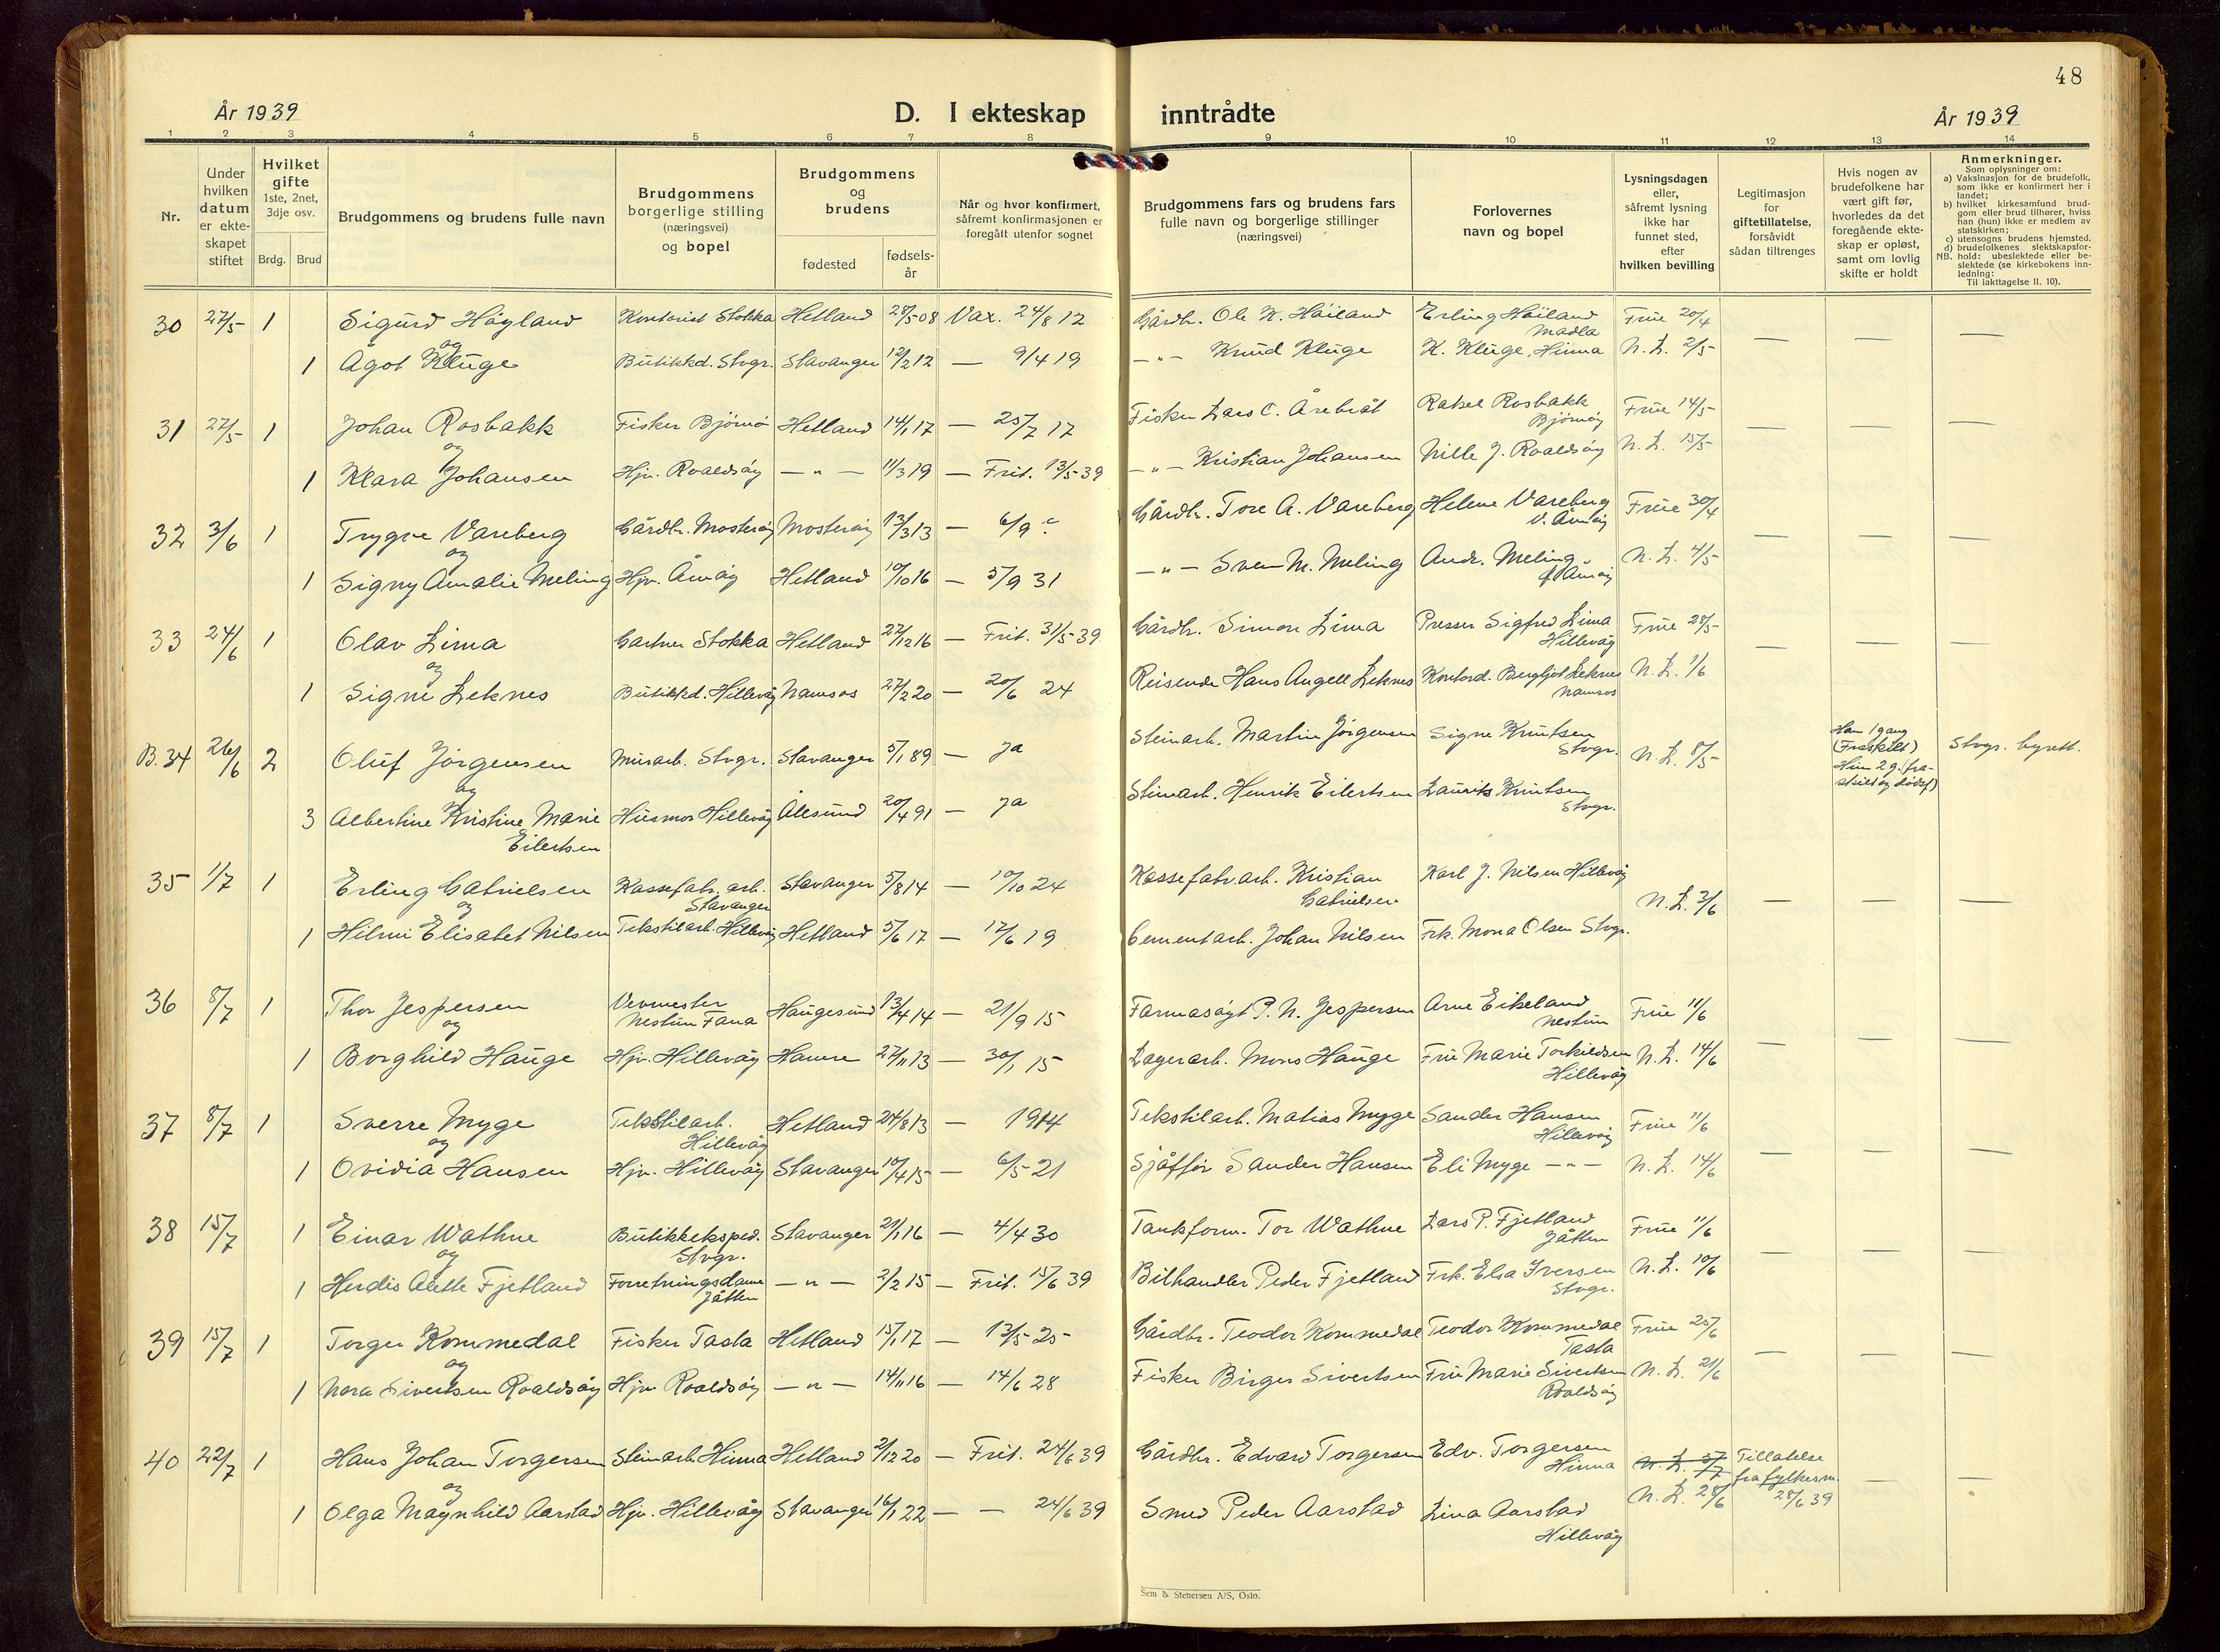 48
År 1939
D. I ekteskap inntrådte
År 1939
1 2 3 4 5 6 7 8 9 10 11 12 13 14
Nr.
Under hvilken datum er ekte- skapet stiftet
Hvilket gifte 1ste, 2net, 3dje osv.
Brdg. Brud
Brudgommens og brudens fulle navn
Brudgommens borgerlige stilling (næringsvei) og bopel
Brudgommens og brudens
fødested
fødsels- år
Når og hvor konfirmert, såfremt konfirmasjonen er foregått utenfor sognet
Brudgommens fars og brudens fars fulle navn og borgerlige stillinger (næringsvei)
Forlovernes navn og bopel
Lysningsdagen eller, såfremt lysning ikke har funnet sted, efter hvilken bevilling
Legitimasjon for giftetillatelse, forsåvidt sådan tiltrenges
Hvis nogen av brudefolkene har vært gift før, hvorledes da det foregående ekte- skap er opløst, samt om lovlig skifte er holdt
Anmerkninger.
Som oplysninger om:
a) Vaksinasjon for de brudefolk, som ikke er konfirmert her i landet;
b) hvilket kirkesamfund brud- gom eller brud tilhører, hviss han (hun) ikke er medlem av statskirken;
c) utensogns brudens hjemsted.
d) brudefolkenes slektskapsfor- hold: ubeslektede eller be- slektede (se kirkebokens inn- ledning:
NB.
Til iakttagelse II. 10).
30 27/5 1 Sigurd Høyland Kontorist Stokka Hetland 28/5-08 Vax. 24/8 12 Gårdbr. Ole K. Høiland Erling Høiland Madla Frue 20/4 — — —
og
1 Ågot Kluge Butikkd. Stvgr. Stavanger 12/2 12 — 9/4 19 — " — Knud Kluge K. Kluge, Hinna N. L. 2/5-
31 27/5 1 Johan Rosbakk Fisker Bjørnø Hetland 14/1 17 — 25/7 17 Fisker Lars C. Årebråt Rakel Rosbakk Bjørnøy Frue 14/5- — — —
og
1 Klara Johansen Hjv. Roaldsøy — " — 11/3 19 — Frit. 13/5-39 — " — Kristian Johansen Nille J. Roaldsøy N. L. 15/5
32 3/6 1 Trygve Vareberg Gårdbr. Mosterøy Mosterøy 13/3 13 — 6/9 Gårdbr. Tore A. Vareberg Helene Vareberg V. Åmøy Frue 30/4 — — —
og
1 Signy Amalie Meling Hjv. Åmøy Hetland 10/10 16 — 5/9 31 — " — Sven M. Meling Andr. Meling Åmøy N. L. 4/5-
33 24/6 1 Olav Lima Gartner Stokka Hetland 27/12 16 — Frit. 31/5-39 Gårdbr. Simon Lima Presser Sigfred Lima Hillevåg Frue 28/5- — — —
og
1 Signe Leknes Butikkd. Hillevåg Namsos 27/2 20 — 20/6 24 Reisende Hans Angell Leknes Kontord. Bergljot Leknes Namsos N. L. 1/6
B. 34 26/6 2 Oluf Jørgensen Murarb. Stvgr. Stavanger 5/1 89 — ja Steinarb. Martin Jørgensen Signe Knutsen Stvgr. N. L. 8/5- Han 1 gang (Fraskilt) Hun 2 g. (fra- skilt og dødsf) Stvgr. byrett.
og
3 Albertine Kristine Marie Eilertsen Husmor Hillevåg Ålesund 20/4 91 — ja Steinarb. Henrik Eilertsen Laurits Knutsen Stvgr.
35 1/7 1 Erling Gabrielsen Kassefabr. arb. Stavanger Stavanger 5/8 14 — 10/10 24 Kassefabr. arb. Kristian Gabrielsen Karl J. Nilsen Hillevåg N. L. 3/6 — — —
og
1 Hilmi Elisabet Nilsen Tekstilarb. Hillevåg Hetland 5/6 17 — 17/6 19 Cementarb. Johan Nilsen Frk. Mona Olsen Stvgr.
36 8/7 1 Thor Jespersen Vevmester Nestun Fana Haugesund 13/4 14 — 21/9 15 Farmasøyt P. N. Jespersen Arne Eikeland Nestun Frue 11/6 — — —
og
1 Borghild Hauge Hjv. Hillevåg Hamre 27/11 13 — 30/1 15 Lagerarb. Mons Hauge Fru Marie Torkildsen Hillevåg N. L. 14/6
37 8/7 1 Sverre Myge Tekstilarb. Hillevåg Hetland 24/8 13 — 1914 Tekstilarb. Matias Myge Sander Hansen Hillevåg Frue 11/6 — — —
og
1 Ovidia Hansen Hjv. Hillevåg Stavanger 10/4 15 — 6/5- 21 Sjåffør Sander Hansen Eli Myge — " — N. L. 14/6
38 15/7 1 Einar Wathne Butikkeksped. Stvgr. Stavanger 21/1 16 — 4/4 30 Tankform. Tor Wathne Lars P. Fjetland Jåtten Frue 11/6 — — —
og
1 Herdis Alette Fjetland Forretningsdame Jåtten — " — 2/2 15 — Frit. 15/6 39 Bilhandler Peder Fjetland Frk. Elsa Iversen Stvgr. N. L. 10/6
39 15/7 1 Torger Kommedal Fisker Tasta Hetland 15/1 17 — 13/5- 25 Gårdbr. Teodor Kommedal Teodor Kommedal Tasta Frue 25/6 — — —
og
1 Nora Sivertsen Roaldsøy Hjv. Roaldsøy — " — 14/11 16 — 14/6 28 Fisker Birger Sivertsen Fru Marie Sivertsen Roaldsøy N. L. 21/6
40 22/7 1 Hans Johan Torgersen Steinarb. Hinna Hetland 2/12 20 — Frit. 24/6 39 Gårdbr. Edvard Torgersen Edv. Torgersen Hinna N. L. 5/7 Tillatelse fra fylkesm. 28/6 39 — —
og
1 Olga Magnhild Aarstad Hjv. Hillevåg Stavanger 16/1 22 — — 24/6 39 Smed Peder Aarstad Lina Aarstad Hillevåg N. L. 28/6
Sem & Stenersen A/S, Oslo.